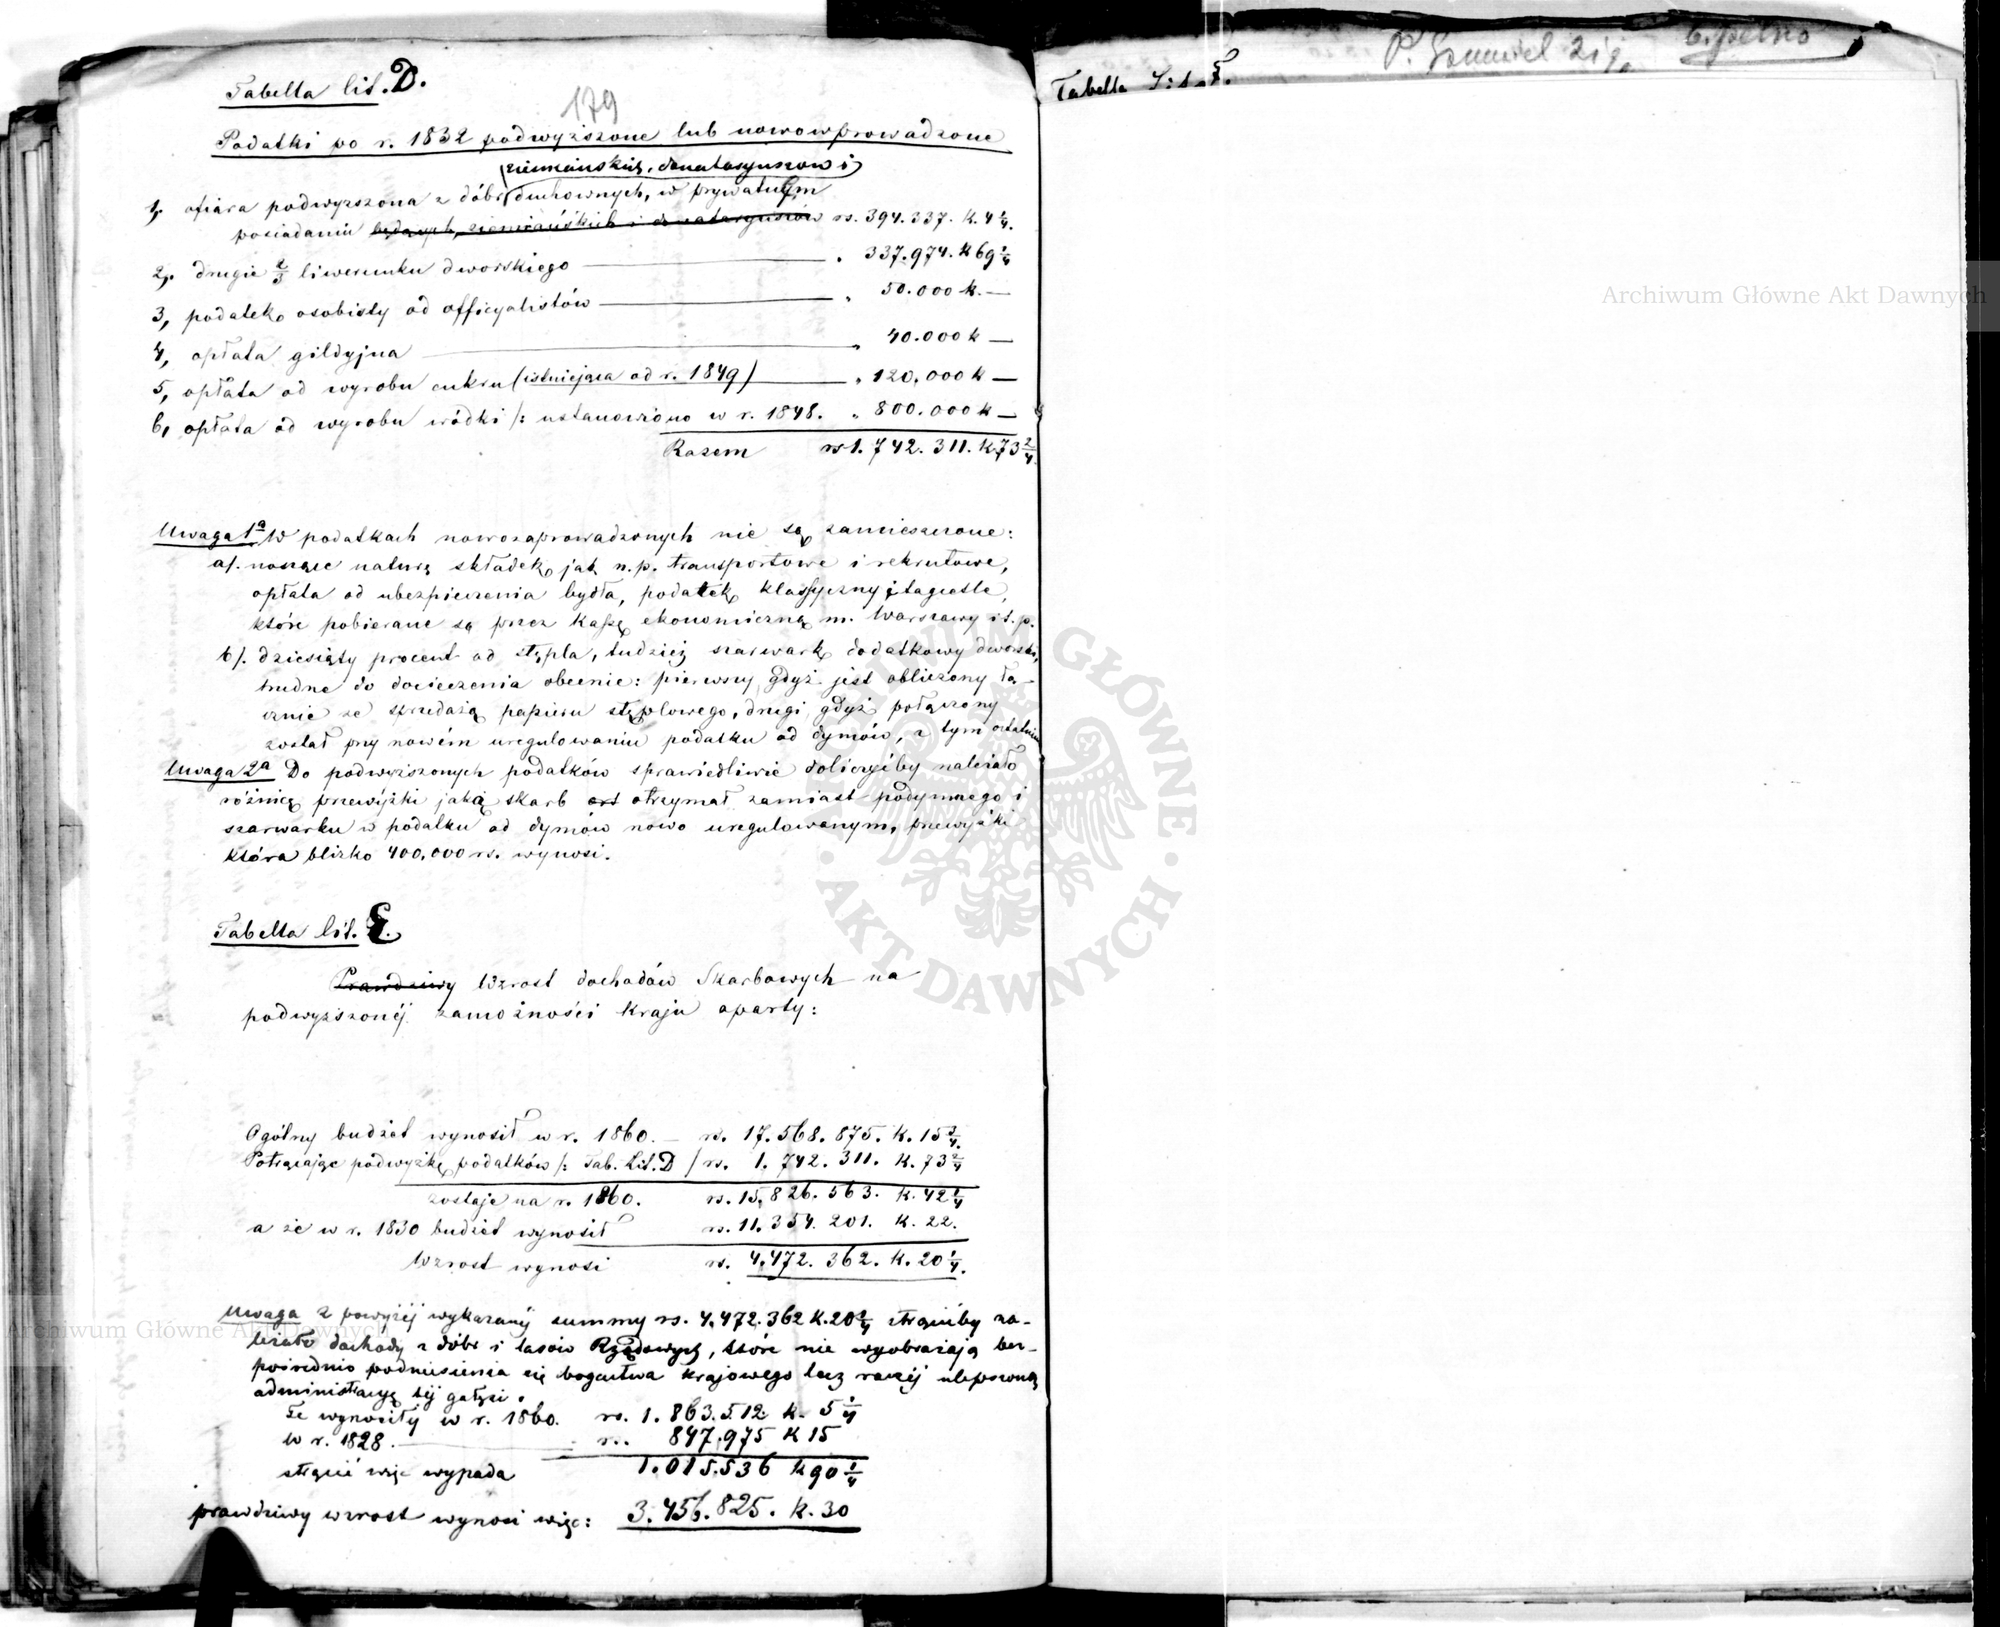 Tabella lit. D.
179
Podatki po r. 1832 podwyższone lub nowowprowadzone
ziemiańskich, donataryuszow i
1, ofiara podwyższona z dóbr duchownych, w prywatnym
posiadaniu będących, ziemiańskich i donataryuszów rs. 394.337. k. 4 1/4.
2, drugie 2/3 liwerunku dworskiego — „ 337.974. k 69 1/4
3, podatek osobisty od officyalistów — „ 50.000 k. —
4, opłata gildyjna — „ 40.000 k —
5, opłata od wyrobu cukru (istniejąca od r. 1849) — „ 120,000 k —
6, opłata od wyrobu wódki /: ustanowiono w r. 1848. „ 800.000 k —
Razem rs 1.742.311. k 73 2/4.
Uwaga 1a W podatkach nowozaprowadzonych nie są zamieszczone:
a/. noszące naturę składek, jak n.p. transportowe i rekrutowe,
opłata od ubezpieczenia bydła, podatek klassyczny i tagietle,
które pobierane są przez kassę ekonomiczną m. Warszawy i t. p.
b/. dziesiąty procent od stępla, tudzież szarwark dodatkowy dworski,
trudne do docieczenia obecnie: pierwszy, gdyż jest obliczony łą-
cznie ze sprzedażą papieru stęplowego, drugi gdyż połączony
został przy nowém uregulowaniu podatku od dymów, z tym ostatnim
Uwaga 2a Do podwyższonych podatków sprawiedliwie doliczyćby należało
różnicę przewyżki jaką skarb otrzymał zamiast podymnego i
szarwarku w podatku od dymów nowo uregulowanym, przewyżki
która blizko 400,000 rs. wynosi.
Tabella lit. E.
Prawdziwy Wzrost dochodów Skarbowych na
podwyższonéj zamożności kraju oparty:
Ogólny budżet wynosił w r. 1860. — rs. 17.568.875. k. 15 3/4.
Potrącając podwyżkę podatków /: Tab. Lit. D / rs. 1.742.311. k. 73 2/4
zostaje na r. 1860. rs. 15,826.563. k. 42 1/4
a że w r. 1830 budżet wynosił rs. 11.354.201. k. 22.
Wzrost wynosi rs. 4.472.362. k. 20 1/4.
Uwaga Z powyżéj wykazanéj summy rs. 4,472.362 k. 20 1/4 strącićby na-
leżało dochody z dóbr i lasów Rządowych, które nie wyobrażają bez-
pośrednio podniesienia się bogactwa krajowego lecz raczéj ulepszoną
administracyę téj gałęzi.
Te wynosiły w r. 1860. rs. 1.863.512 k. 5 1/4
W r. 1828. — rs. 847.975 k 15
strącić więc wypada 1.015.536 k 90 1/4
prawdziwy wzrost wynosi więc: 3.456.825. k. 30
Tabella Lit. F.
Archiwum Główne Akt Dawnych
Archiwum Główne Akt Dawnych
ARCHIWUM GŁÓWNE · AKT DAWNYCH ·